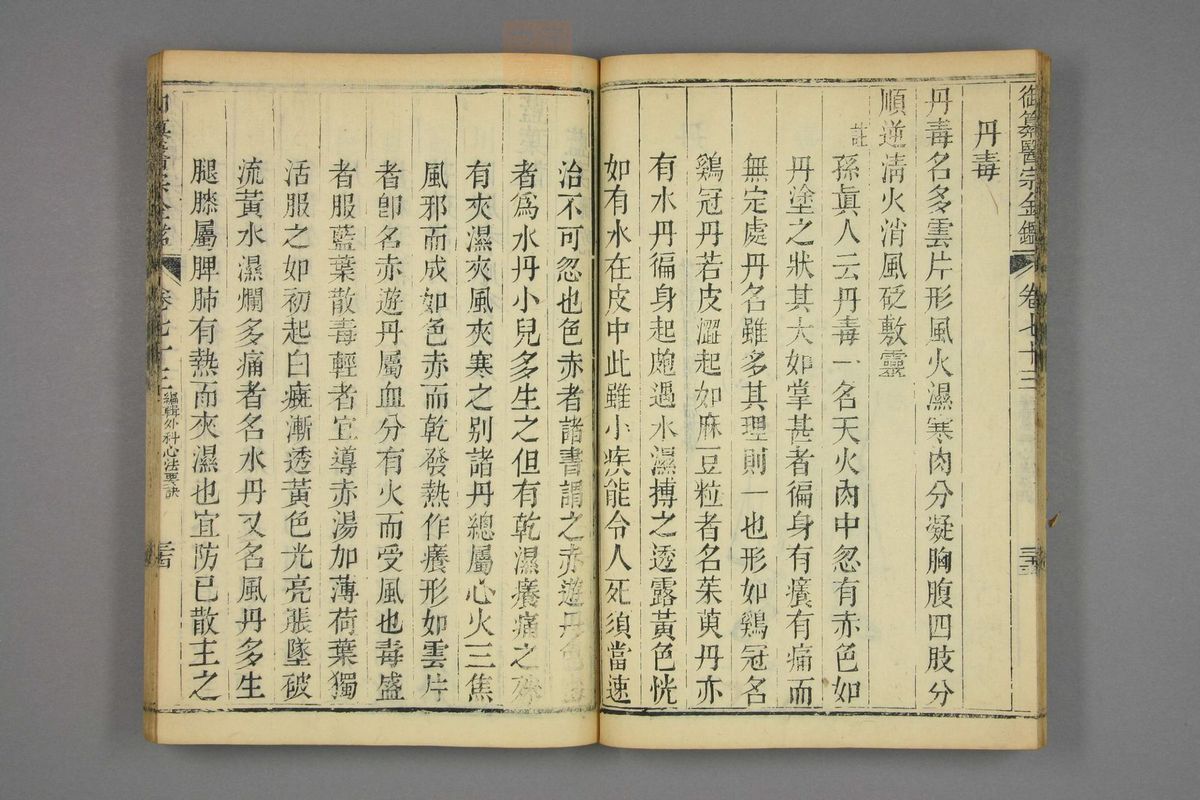 御纂醫宗金鑑 卷七十三
丹毒
丹毒名多雲片形風火濕寒肉分凝胸腹四肢分
順逆清火消風砭敷靈
註
孫眞人云丹毒一名天火肉中忽有赤色如
丹塗之狀其大如掌甚者徧身有癢有痛而
無定處丹名雖多其理則一也形如鷄冠名
鷄冠丹若皮澀起如麻豆粒者名茱萸丹亦
有水丹徧身起皰遇水濕搏之透露黃色恍
如有水在皮中此雖小疾能令人死須當速
治不可忽也色赤者諸書謂之赤遊丹色
者爲水丹小兒多生之但有乾濕癢痛之殊
有夾濕夾風夾寒之别諸丹總屬心火三焦
風邪而成如色赤而乾發熱作癢形如雲片
者卽名赤遊丹屬血分有火而受風也毒盛
者服藍葉散毒輕者宜導赤湯加薄荷葉獨
活服之如初起白癍漸透黃色光亮脹墜破
流黃水濕爛多痛者名水丹又名風丹多生
腿膝屬脾肺有熱而夾濕也宜防已散主之
卷七十三 編輯外科心法要訣